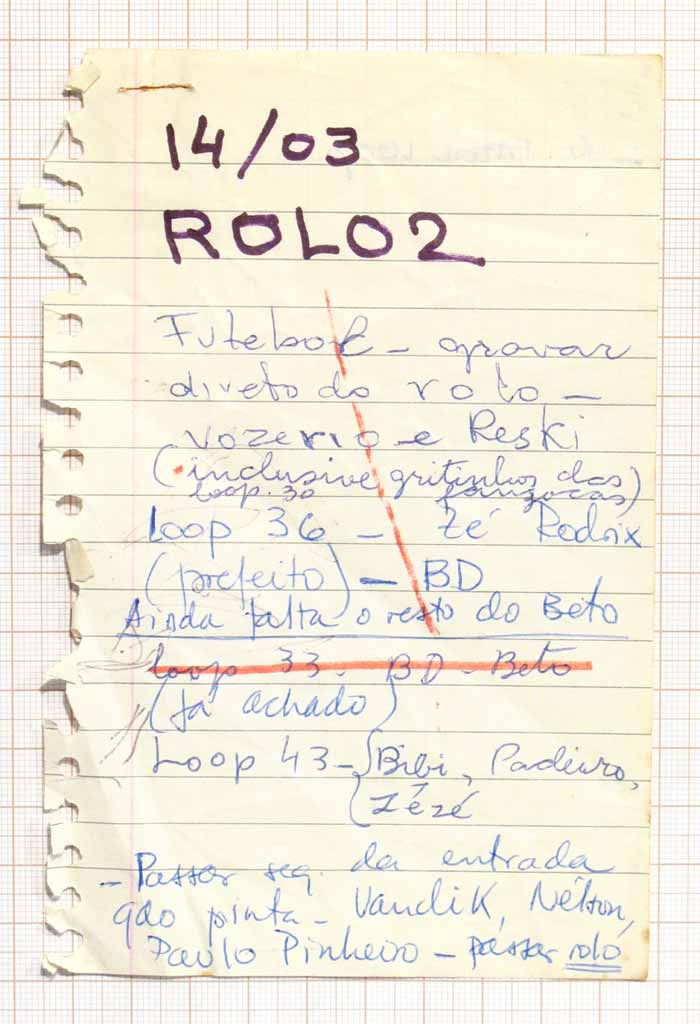 14/03
ROLO 2
Futebol - gravar
direto do rolo -
vozerio e Reski
(inclusive gritinhos das
loop. 30 fanzocas)
Loop 36 - Zé Rodrix
(prefeito) - BD
Ainda falta o resto do Beto
loop 33 - BD - Beto
(já achado)
Loop 43 - { Bibi, Padeiro,
Zézé
- Passar seq. da entrada
qdo pinta - Vandik, Nélson,
Paulo Pinheiro - passar rolo